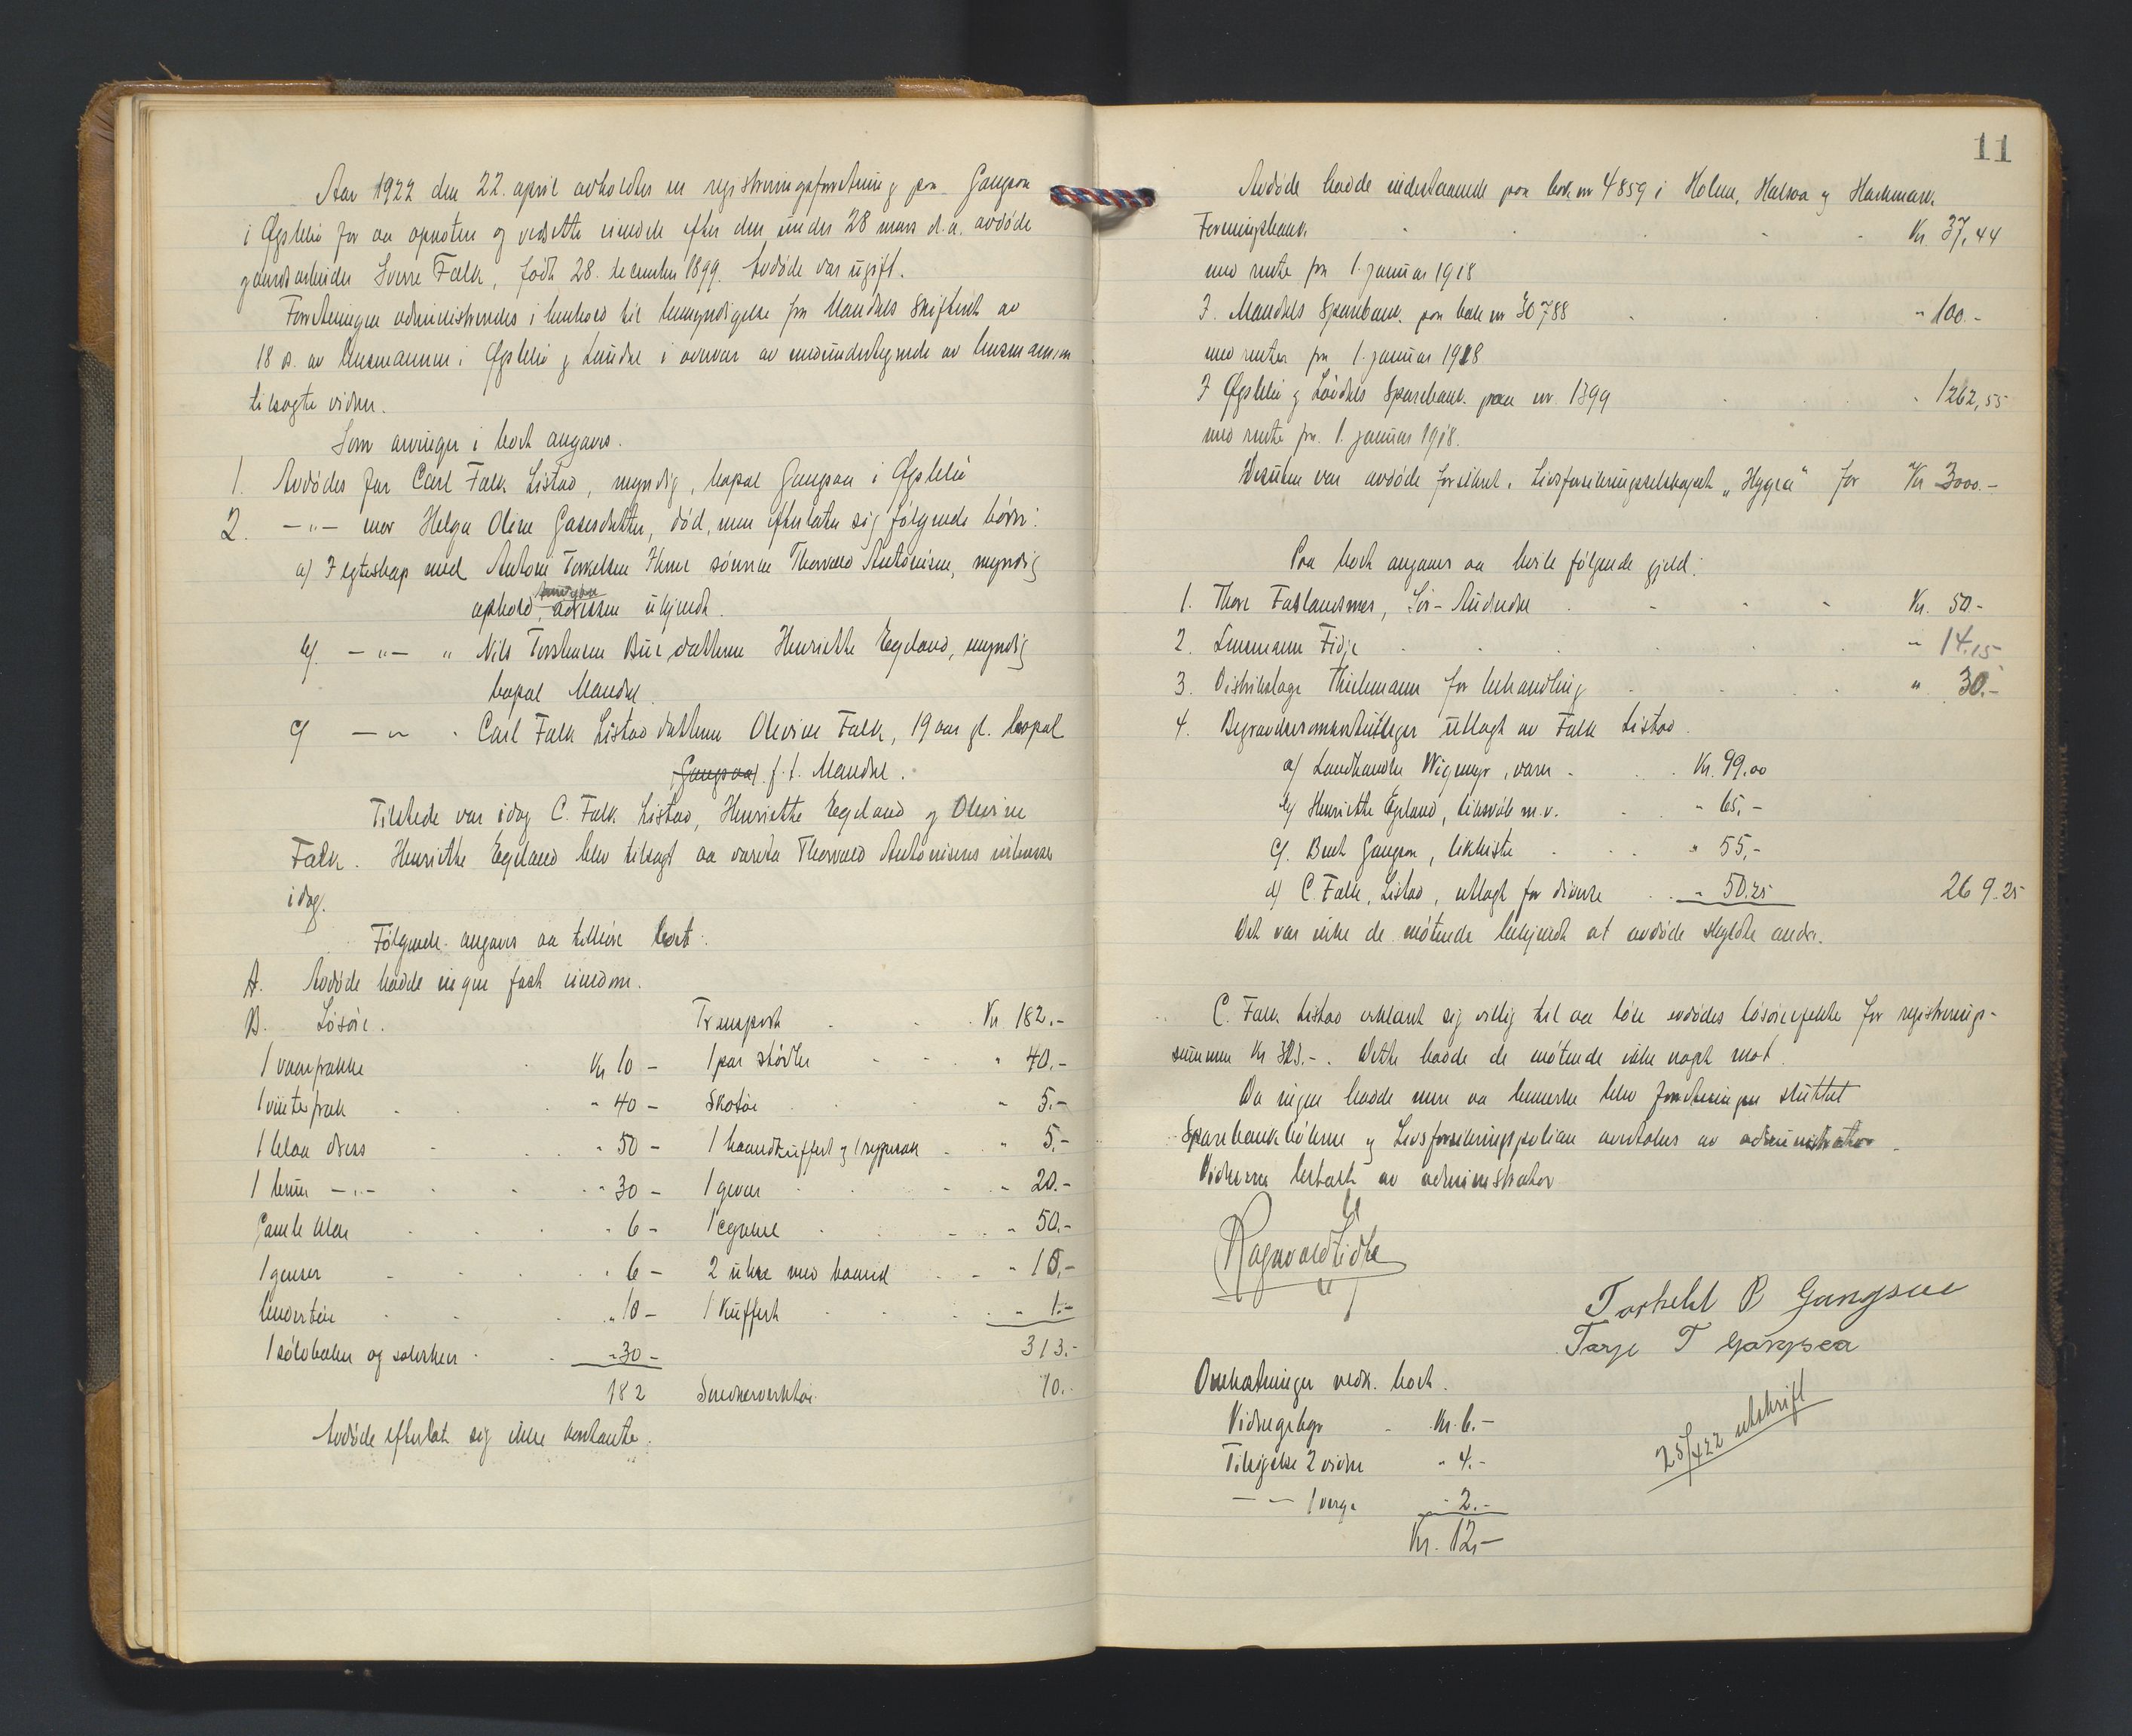 Aar 1922 den 22. april avholdtes en registreringsforretning paa Gangsaa
i Øyslebø for aa opnotere og verdsette eiendele efter den under 28 mars d.a. avdøde
gaardsarbeider Sverre Falk, født 28. december 1899. Avdøde var ugift.
Forretningen administrertes i henhold til bemyndigelse fra Mandals Skifteret av
18 ds. av lensmannen i Øyslebø og Laudal i overvær av medundertegnede av lensmannen
tilsagte vidner.
Som arvinger i boet angaves.
1. Avdødes far Carl Falk Listad, myndig, bopæl Gangsaa i Øyslebø
2. -"- mor Helga Oline Gasesdatter, død, men efterlater sig følgende børn:
a) I egteskap med Antoni Torkelsen sønnen Thorvald Antonisen, myndig
ophold, adressen ukjendt.
b) -"- " Nils Torstensen Bue datteren Henriette Egeland, myndig
bopæl Mandal.
c) - " - Carl Falk Listad datteren Olevine Falk, 19 aar gl. bopæl
Gangsaa f.t. Mandal.
Tilstede var idag C. Falk Listad, Henriette Egeland og Olevine
Falk. Henriette Egeland blev tilsagt aa vareta Thorvald Antonisens interesser
idag.
Følgende angaves aa tilhøre boet:
A. Avdøde hadde ingen fast eiendom.
B. Løsøre.
1 vaarfrakke Kr 10 -
1 vinterfrak " 40 -
1 blaa dress " 50 -
1 brun -"- " 30 -
Gamle klær " 6 -
1 genser " 6 -
Undertøi " 10 -
1 sølvbæger og salvskeer " 30 -
182
Transport Kr 182.-
1 par støvler " 40.-
Skotøi " 5.-
1 haandkuffert og 1 ryggsæk " 5.-
1 gevær " 20.-
1 cykkel " 50.-
2 uhre med baand " 10,-
1 Kuffert " 1.-
313.-
Snedkerverktøi 10.-
Avdøde efterlot sig ikke kontanter.
11
Avdøde hadde indestaaende paa bok nr 4859 i Holum, Halsaa og Harkmark
Foreningsbank Kr 37,44
med rente fra 1. januar 1918
I Mandals Sparebank paa bok nr 30788 " 100.-
med renter fra 1. januar 1918
I Øyslebø og Laudals Sparebank paa nr 1399 " 1262,55
med rente fra 1. januar 1918.
Desuten var avdøde forsikret i Livsforsikringsselskapet „Hygea" for Kr 3000.-
Paa boet angaves aa hvile følgende gjeld:
1. Thore Faslandsmo, Sør-Audnedal Kr. 50.-
2. Lensmann Fidje " 14.15
3. Distriktslæge Thickmann for behandling " 30.-
4. Begravelsesomkostninger utlagt av Falk Listad.
a) Landhandler Wigemyr, varer Kr. 99.00
b) Henriette Egeland, liksvøb m.v. " 65,-
c) Berit Gangsaa, likkiste " 55,-
d) C. Falk, Listad, utlagt for diverse " 50.25 269.25
Det var ikke de møtende bekjendt at avdøde skyldte andre.
C. Falk Listad erklærte sig villig til aa løse avdødes løsøreeffekter for registrerings-
summen Kr 323.-. Dette hadde de møtende ikke noget imot.
Da ingen hadde mere aa bemerke blev forretningen sluttet
Sparebankbøkerne og Livsforsikringspolisen avertaless av administrator.
Vidnerne betalt av administrator
Ragnvald Fidje
Torkel P Gangsaa
Tarje T Gangsaa
Omkostninger vedk. boet.
Vidnegebyr Kr. 6.-
Tilsigelse 2 vidner " 4.-
- " - 1 verge " 2.-
Kr. 12,-
25/4 22 utskrift